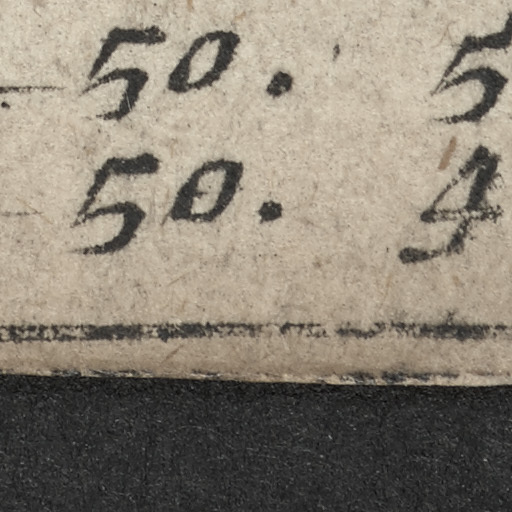 50. 5
50. 4